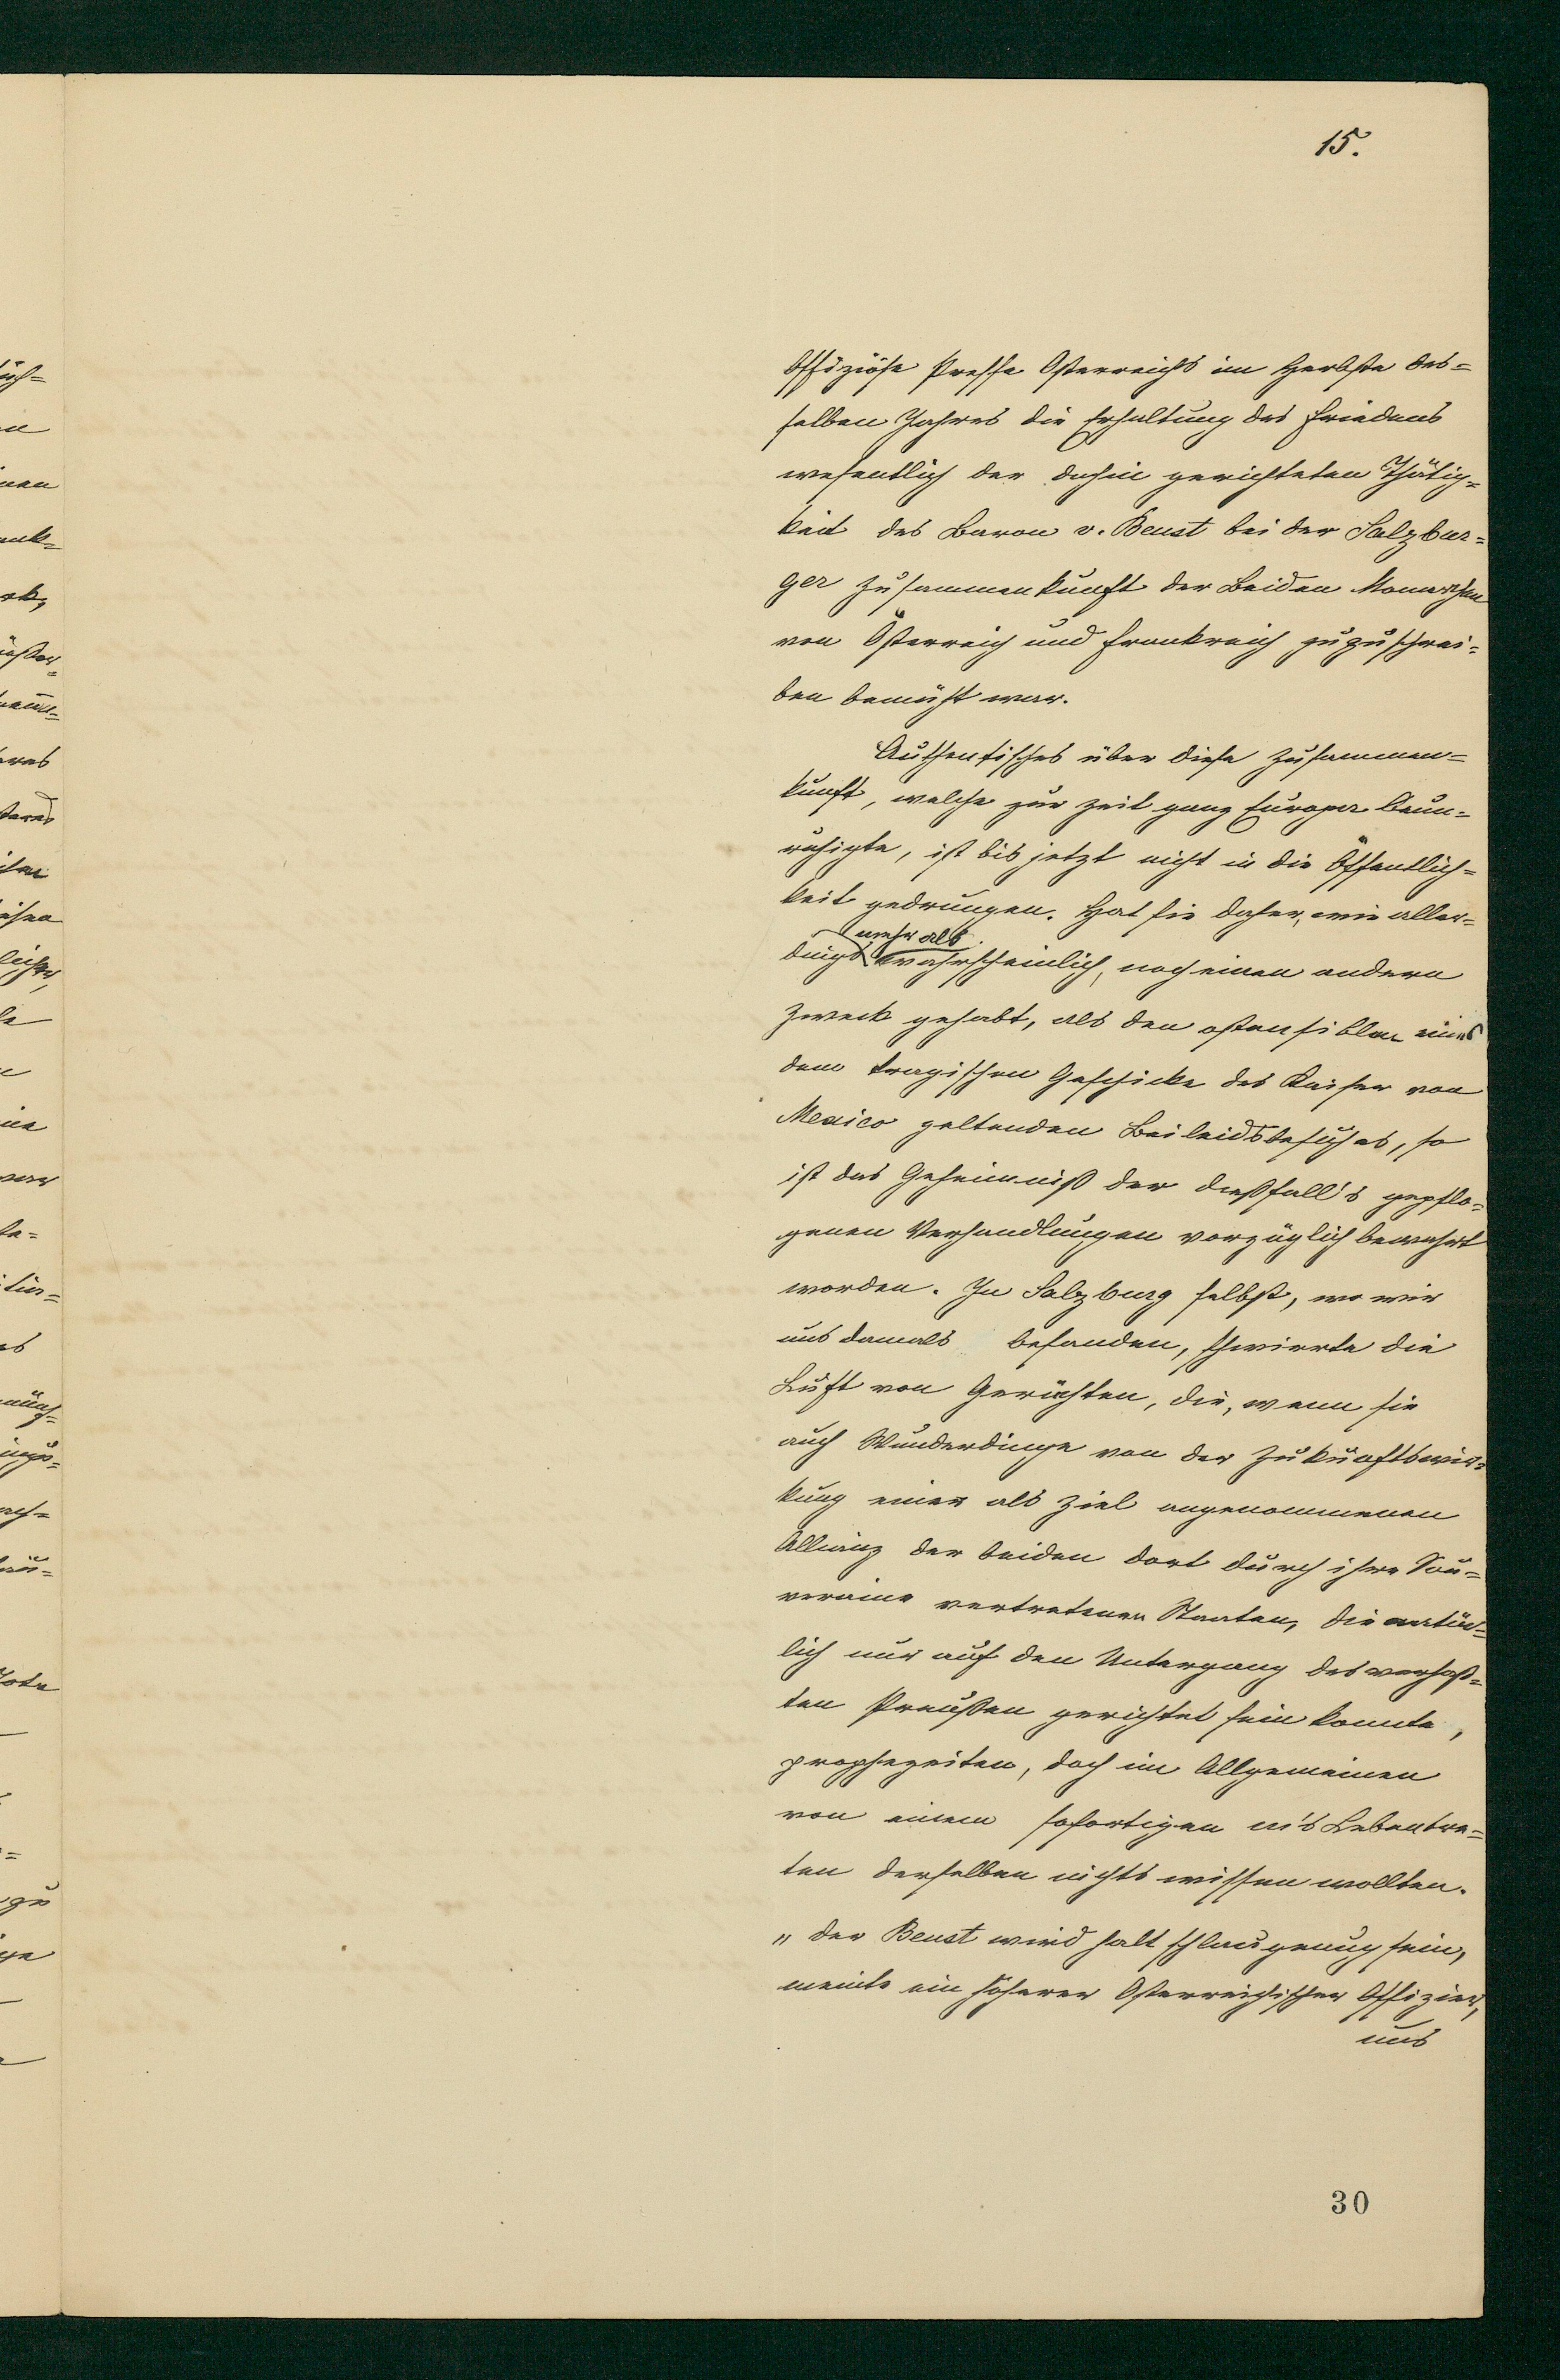 15.
Offiziöse Presse Österreichs im Herbste des=
selben Jahres die Erhaltung des Friedens
wesentlich der dahin gerichteten Thätig=
keit des Baron v. Beust bei der Salzbur=
ger Zusammenkunft der Beiden Monarchen
von Österreich und Frankreich zuzuschrei=
ben bemüht war.
Authentisches über diese Zusammen=
kunft, welche zur Zeit ganz Europa beun=
ruhigte, ist bis jetzt nicht in die Öffentlich=
keit gedrungen. Hat sie daher, wie aller=
mehr als
dings wahrscheinlich, noch einen andern
Zweck gehabt, als den ostensiblen eines
dem tragischen Geschicke des Kaiser von
Mexico geltenden Beileidsbesuches, so
ist das Geheimniß der dießfall's gepflo=
genen Verhandlungen vorzüglich bewahrt
worden. In Salzburg selbst, wo wir
uns damals befanden, schwirrte die
Luft von Gerüchten, die, wenn sie
auch Wunderdinge von der Zukunftswir=
kung einer als Ziel angenommenen
Allianz der beiden dort durch ihre Sou=
veraine vertretenen Staaten, die natür=
lich nur auf den Untergang des verhaß=
ten Preußen gerichtet sein konnte,
prophezeiten, doch im Allgemeinen
von einem sofortigen in's Lebentre=
ten derselben nichts wissen wollten.
„der Beust wird halt schlau genug sein,
meinte ein höherer Österreichischer Offizier,
uns
30